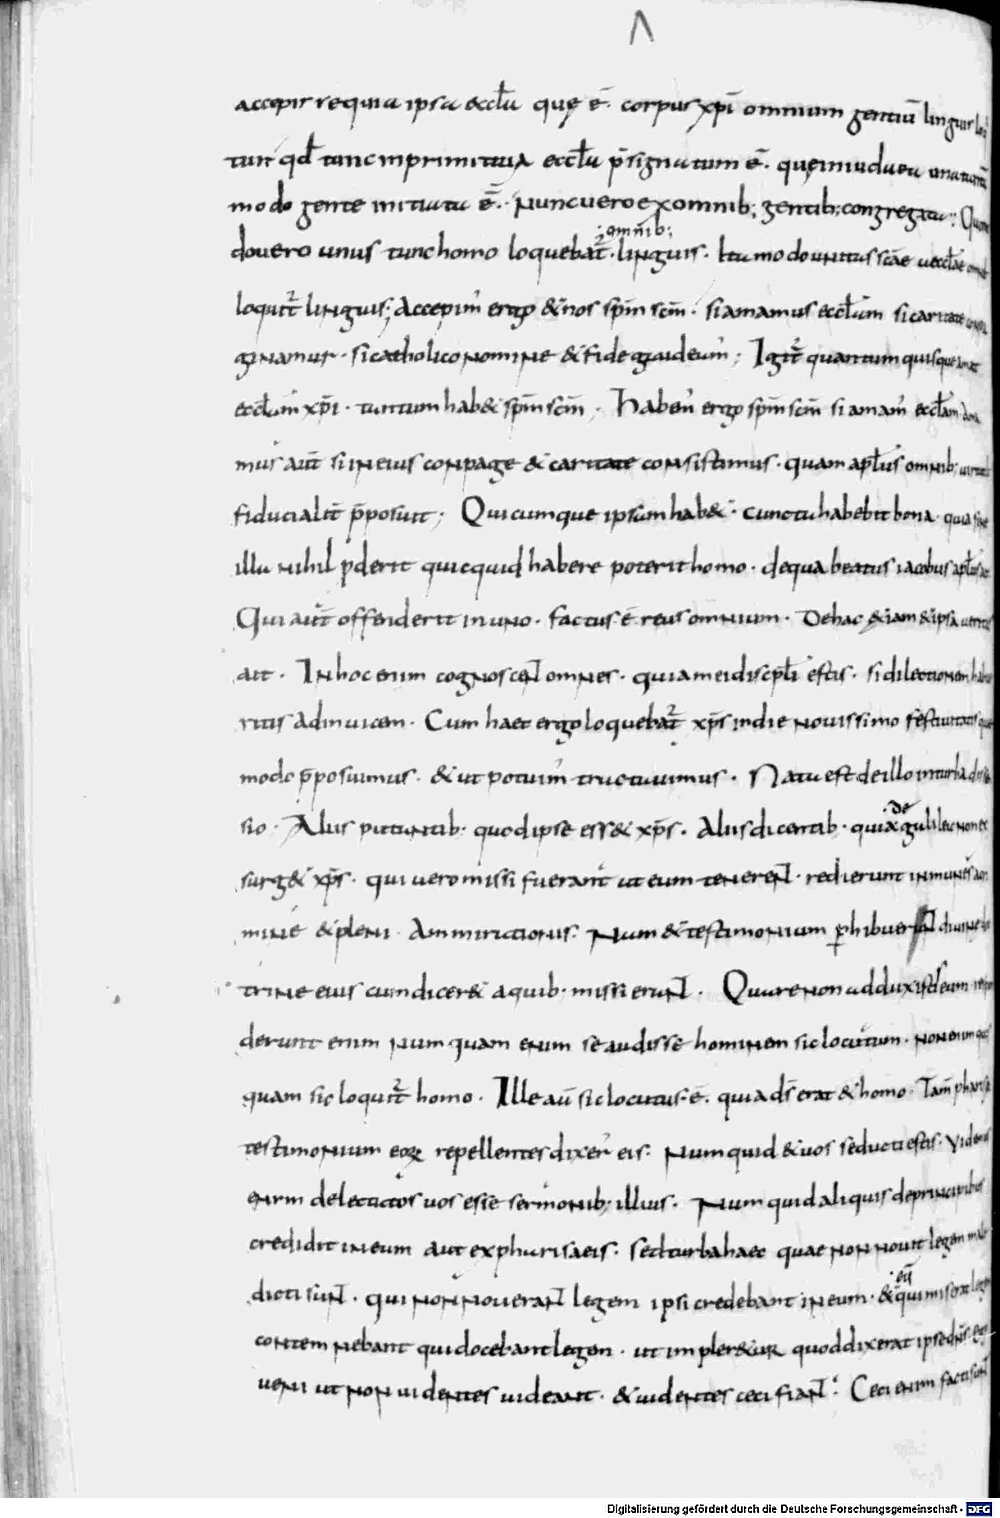 Λ
accepisse quia ipsa eccła quę ē. corpus xpi omnium gentiū linguis
tur qđ tunc in primitiua eccła p̄signatum ē. que in iudaea una
modo gente initiata ē. Nunc uero ex omnib; gentib; congregata;
;omnib;
do uero unus tunc homo loquebat̄ linguis. Ita modo unitas scāe
loquit̄ linguis; Accepim' ergo & nos spm̄ scm̄. si amamus eccłam si caritate
ginamur. si catholico nomine & fide gaudeum'; Igit̄ quantum quisque amat
eccłam xpi. tantum hab& spm̄ scm̄. Habem' ergo spm̄ scm̄ si amam' eccłam
mus aut̄ si in eius conpage & caritate consistimus. quam apłus omnib;
fiducialit̄ p̄posuit; Quicumque ipsam hab&. cuncta habebit bona. quia sine
illa nihil p̱derit quicquid habere poterit homo. de qua beatus iacobus apłus
Qui aut̄ offenderit in uno. factus ē reus omnium. De hac &iam & ipsa ueritas
ait. In hoc enim cognoscent omnes. quia mei discipłi estis. si dilectionem
ritis adinuicem. Cum haec ergo loquebat̄ xps̄ in die nouissimo festiuitatis
modo p̄posuimus. & ut potuim' tractauimus. Nata est de illo in turba
sio. Alius putantib; quod ipse ess& xps̄. Aliis dicentib. quia galilea non ex
de
surg& xps̄. qui uero missi fuerant ut eum tenerent. redierunt inmunes
mine & pleni ammirationis. Nam & testimonium p̱hibuerunt diuinae
trine eius cum dicer& a quib. missi erant. Quare non adduxistis eum.
derunt enim numquam enim se audisse hominem sic locutum. non enim
quam sic loquit̄ homo. Ille aū sic locutus ē. quia ds̄ erat & homo. Tam̄
testimonium eoꝝ repellentes dixer̄ eis. Numquid & uos seducti estis.
enim delectatos uos esse sermonib; illius. Numquid aliquis de principibus
credidit in eum aut ex pharisaeis. sed turba haec quae non nouit legem
dicti sunt. qui non nouerant legem ipsi credebant in eum. & qui miserat
eū
contemnebant qui docebant legem. ut impler&ur quod dixerat ipse dn̄s.
ueni ut non uidentes uideant. & uidentes ceci fiant. Ceci enim facti sunt
Digitalisierung gefördert durch die Deutsche Forschungsgemeinschaft - DFG